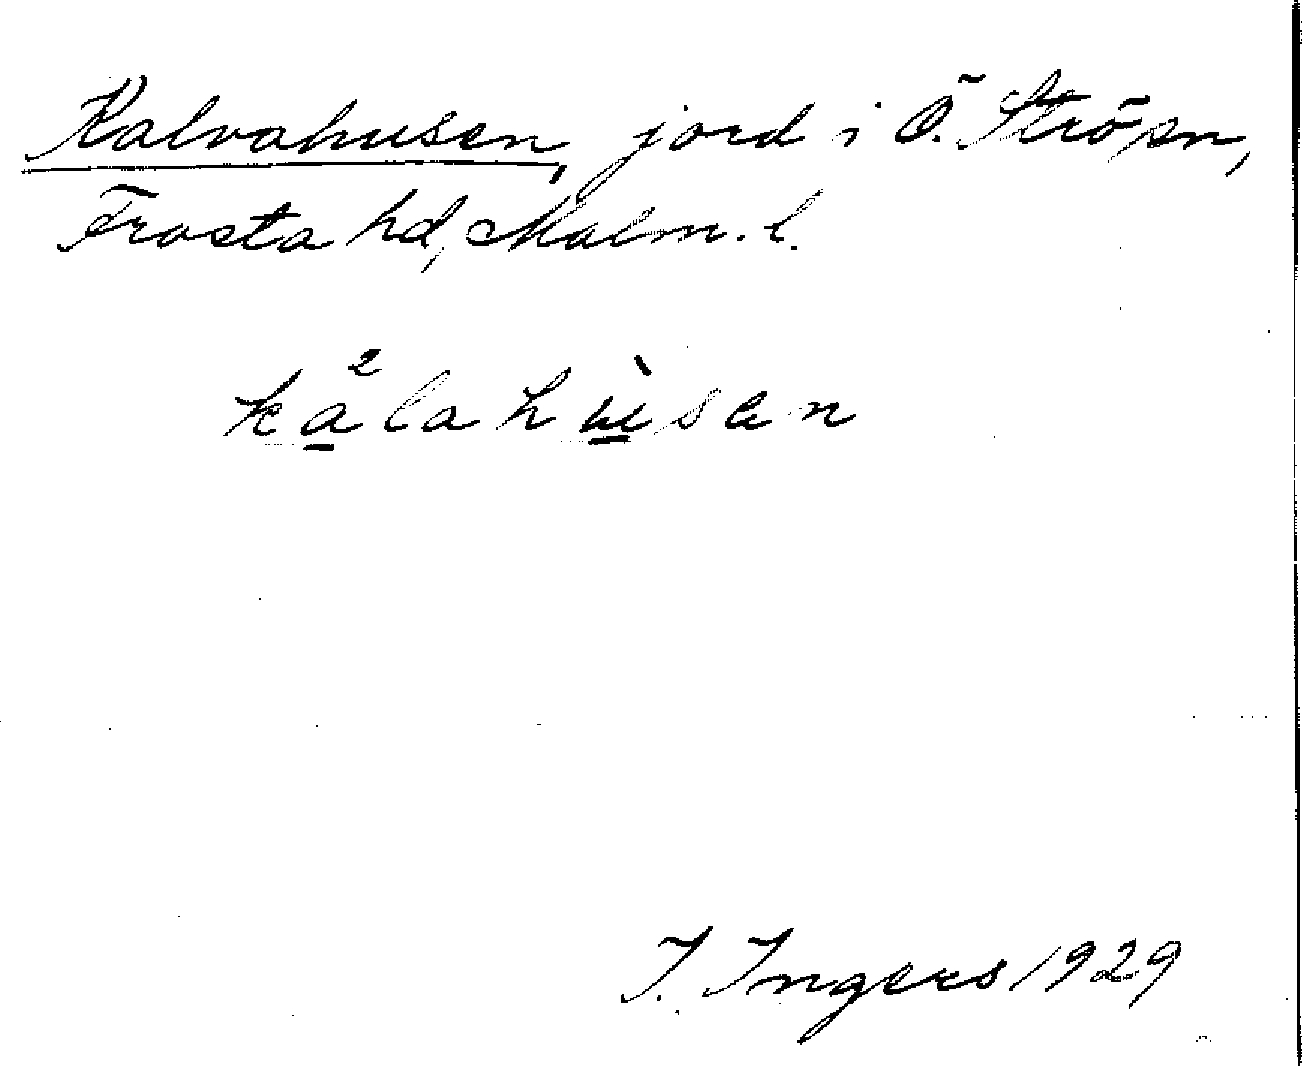 Kalvahusen, jord i Ö. Strö sn,
Frosta hd, Malm. l.
kålahùsen
I. Ingers 1929